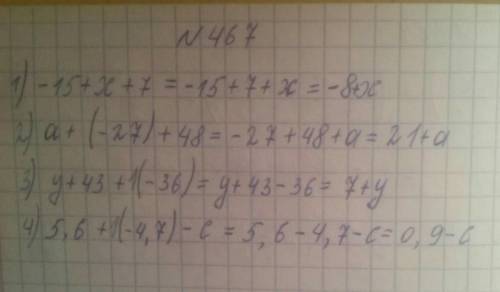 №467
1) -15+x+7 = -15+7+x = -8+x
2) a+(-27)+48 = -27+48+a = 21+a
3) y+43+1(-36) = y+43-36 = 7+y
4) 5,6+1(-4,7)-c = 5,6-4,7-c = 0,9-c